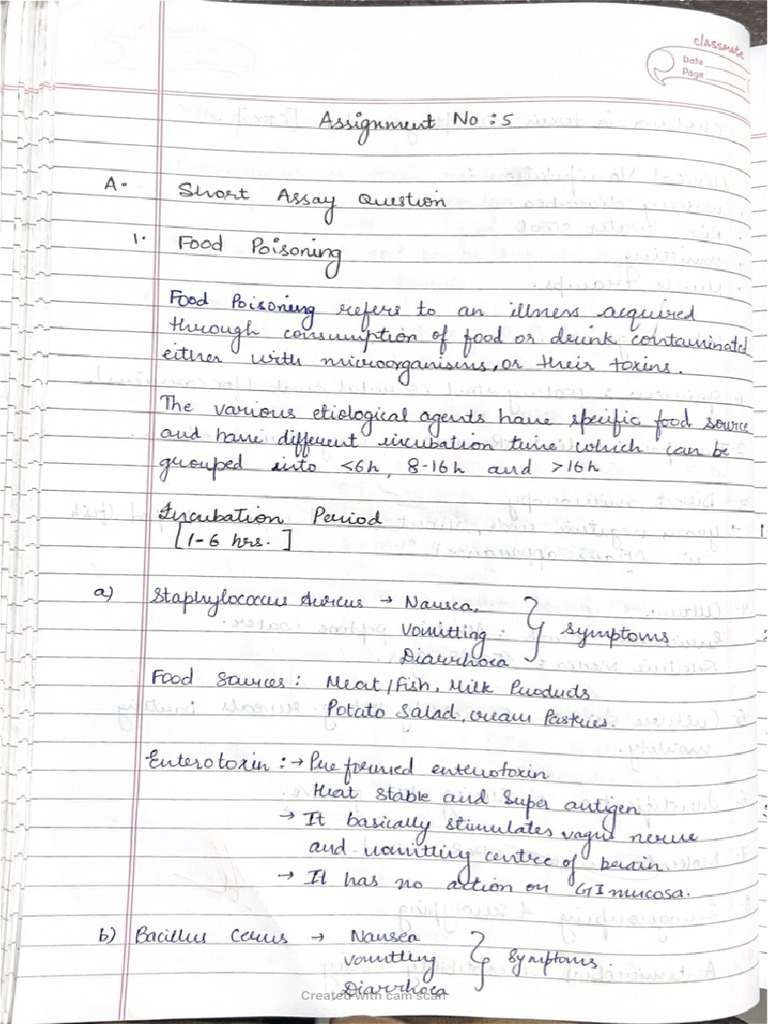 classmate
Date
Page
Assignment No : 5
A. Short Assay Question
1. Food Poisoning
Food Poisoning refers to an illness acquired
through consumption of food or drink contaminated
either with microorganisms, or their toxins.
The various etiological agents have specific food source
and have different incubation time which can be
grouped into <6h, 8-16h and >16h
Incubation Period
[1-6 hrs.]
a) Staphylococcus Aureus → Nausea,
Vomitting
Diarrhoea
} Symptoms
Food Sources : Meat/Fish, Milk Products
Potato Salad, cream Pastries.
Enterotoxin : → Pre formed enterotoxin
Heat stable and Super antigen
→ It basically stimulates vagus nerve
and vomitting centre of brain
→ It has no action on GI mucosa.
b) Bacillus Cerus → Nausea
vomitting
Diarrhoea
} Symptoms.
Created with cam scan